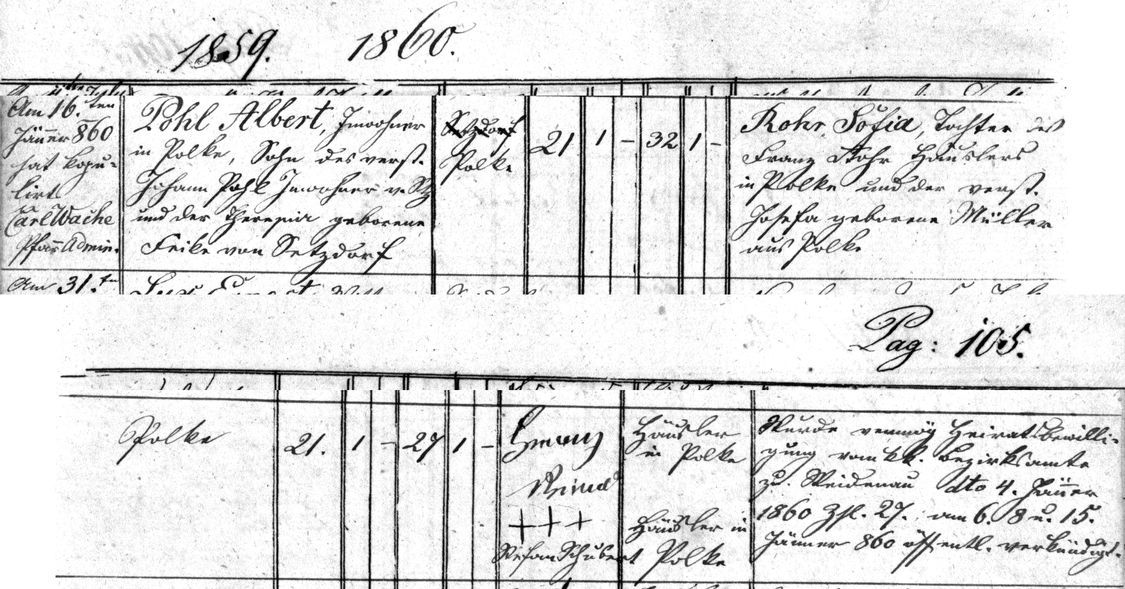 1859. 1860.
Am 16.ten
Jänner 860
hat kopu-
lirt
Carl Wache
Pfarr Admin.
Pohl Albert, Inwohner
in Polke, Sohn des verst.
Johann Pohl Inwohner
und der Theresia geborene
Feike von Setzdorf
Setzdorf
Polke
21 1 – 32 1 –
Rohr, Sofia Tochter des
Franz Rohr Häuslers
in Polke und der verst.
Josefa geborene Müller
aus Polke
Am 31.ten
Pag: 105.
Polke
21. 1 – 27 1 –
Franz
+++
Stefan Schubert
Häusler
in Polke
Häusler in
Polke
Wurde vermög Heiratsbewilli-
gung vom kk. Bezirksamte
zu Weidenau dto 4. Jänner
1860 Zhl. 27. am 6. 8 u. 15.
Jänner 860 öffentl. verkündigt.